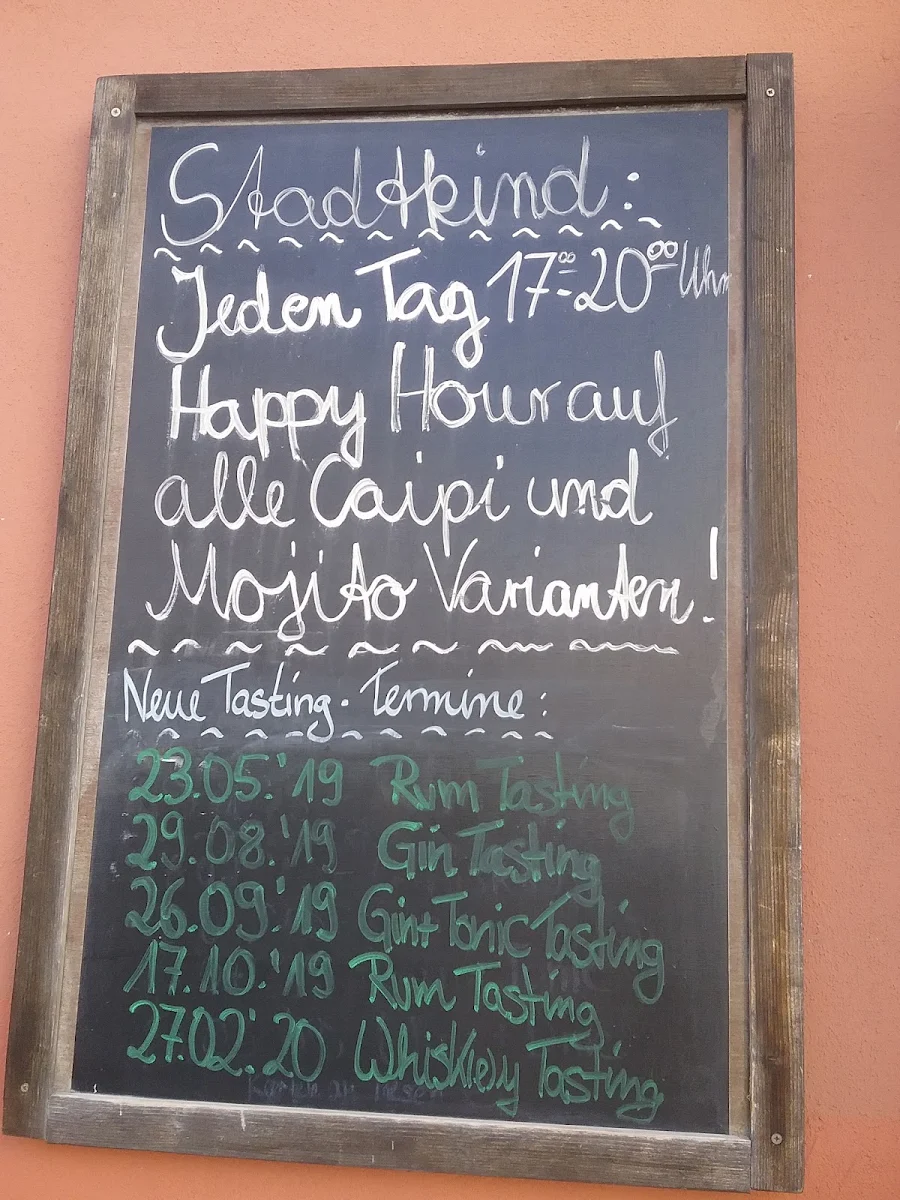 Stadtkind:
Jeden Tag 17:00-20:00 Uhr
Happy Hour auf
alle Caipi und
Mojito Varianten!
Neue Tasting-Termine:
23.05.'19 Rum Tasting
29.08.'19 Gin Tasting
26.09.'19 Gin+Tonic Tasting
17.10.'19 Rum Tasting
27.02.'20 Whisk(e)y Tasting